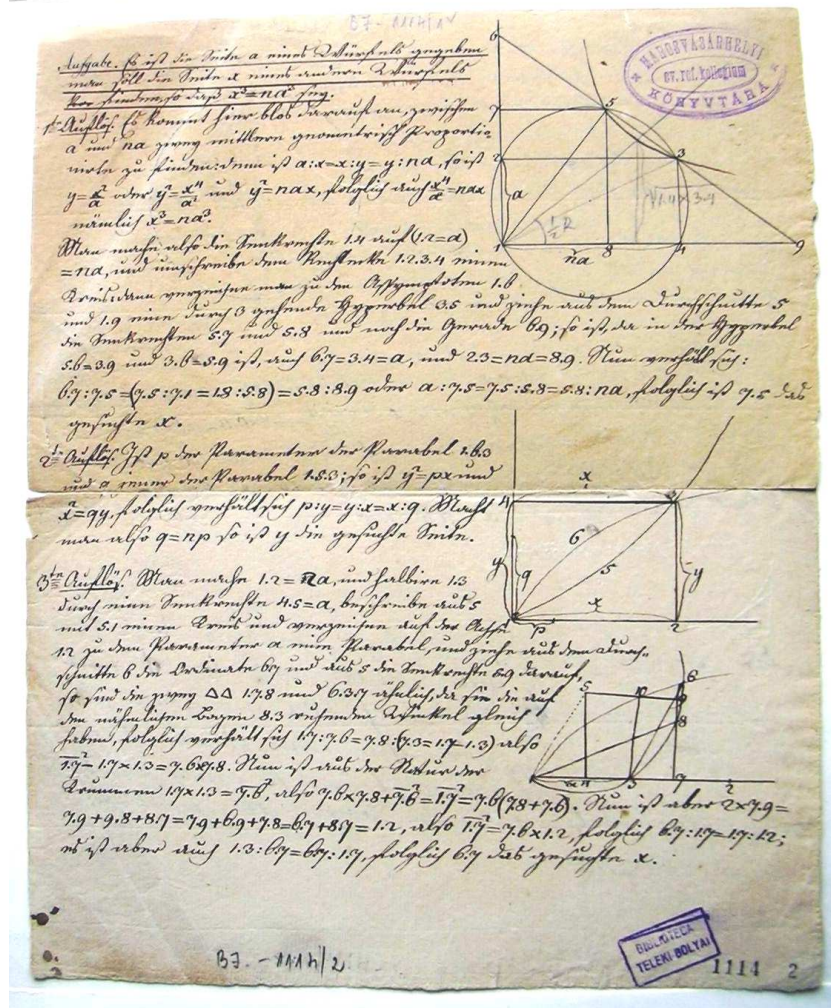 BJ - 1114/1v
Aufgabe. Es ist die Seite a eines Würfels gegeben
man soll die Seite x eines andern Würfels
finden, so daß x³=na³ sey.
1te Auflös. Es kommt hier blos darauf an, zwischen
a und na zwey mittlere geometrisch Proportio
nirte zu finden: denn ist a:x=x:y=y:na, so ist
y=x²/a oder y²=x⁴/a² und y²=nax, folglich auch x⁴/a²=nax
nämlich x³=na³.
Man mache also die Senkrechte 1.4 auf (1.2=a)
=na, und umschreibe dem Rechtecke 1.2.3.4 einen
Kreis: dann verzeichne man zu den Assymptoten 1.6
und 1.9 eine durch 3 gehende Hyperbel 3.5 und ziehe aus dem Durchschnitte 5
die Senkrechten 5.7 und 5.8 und noch die Gerade 6.9; so ist, da in der Hyperbel
5.6=3.9 und 3.6=5.9 ist, auch 6.7=3.4=a, und 2.3=na=8.9. Nun verhält sich:
6.7:7.5=(7.5:7.1=1.8:5.8)=5.8:8.9 oder a:7.5=7.5:5.8=5.8:na, folglich ist 7.5 das
gesuchte x.
2te Auflös. Ist p der Parameter der Parabel 1.6.3
und q jener der Parabel 1.5.3; so ist y²=px und
x²=qy, folglich verhält sich p:y=y:x=x:q. Macht
man also q=np so ist y die gesuchte Seite.
3te Auflös. Man mache 1.2=na, und halbire 1.3
durch eine Senkrechte 4.5=a, beschreibe aus 5
mit 5.1 einen Kreis und verzeichne auf der Achse
1.2 zu dem Parameter a eine Parabel, und ziehe aus dem Durch-
schnitte 6 die Ordinate 6.7 und aus 5 die Senkrechte 5.9 darauf,
so sind die zwey ΔΔ 1.7.8 und 6.3.7 ähnlich, da sie die auf
den nähmlichen Bogen 8.3 ruhenden Winkel gleich
haben, folglich verhält sich 1.7:7.6=7.8:(7.3=1.7-1.3) also
1.7²-1.7×1.3=7.6×7.8. Nun ist aus der Natur der
Krummen 1.7×1.3=7.6², also 7.6×7.8+7.6²=1.7²=7.6(7.8+7.6). Nun ist aber 2×7.9=
7.9+9.8+8.7=7.9+6.9+7.8=6.7+8.7=1.2, also 1.7²=7.6×1.2, folglich 6.7:1.7=1.7:1.2;
es ist aber auch 1.3:6.7=6.7:1.7, folglich 6.7 das gesuchte x.
MAROSVÁSÁRHELYI
ev. ref. kollegium
KÖNYVTÁRA
6
7
5
2
3
a
½R
1
na
8
4
9
x
4
3
6
y
q
5
y
x
p
2
5
6
9
8
4
3
7
2
BJ. - 1114/2
BIBLIOTECA
TELEKI-BOLYAI
1114 2